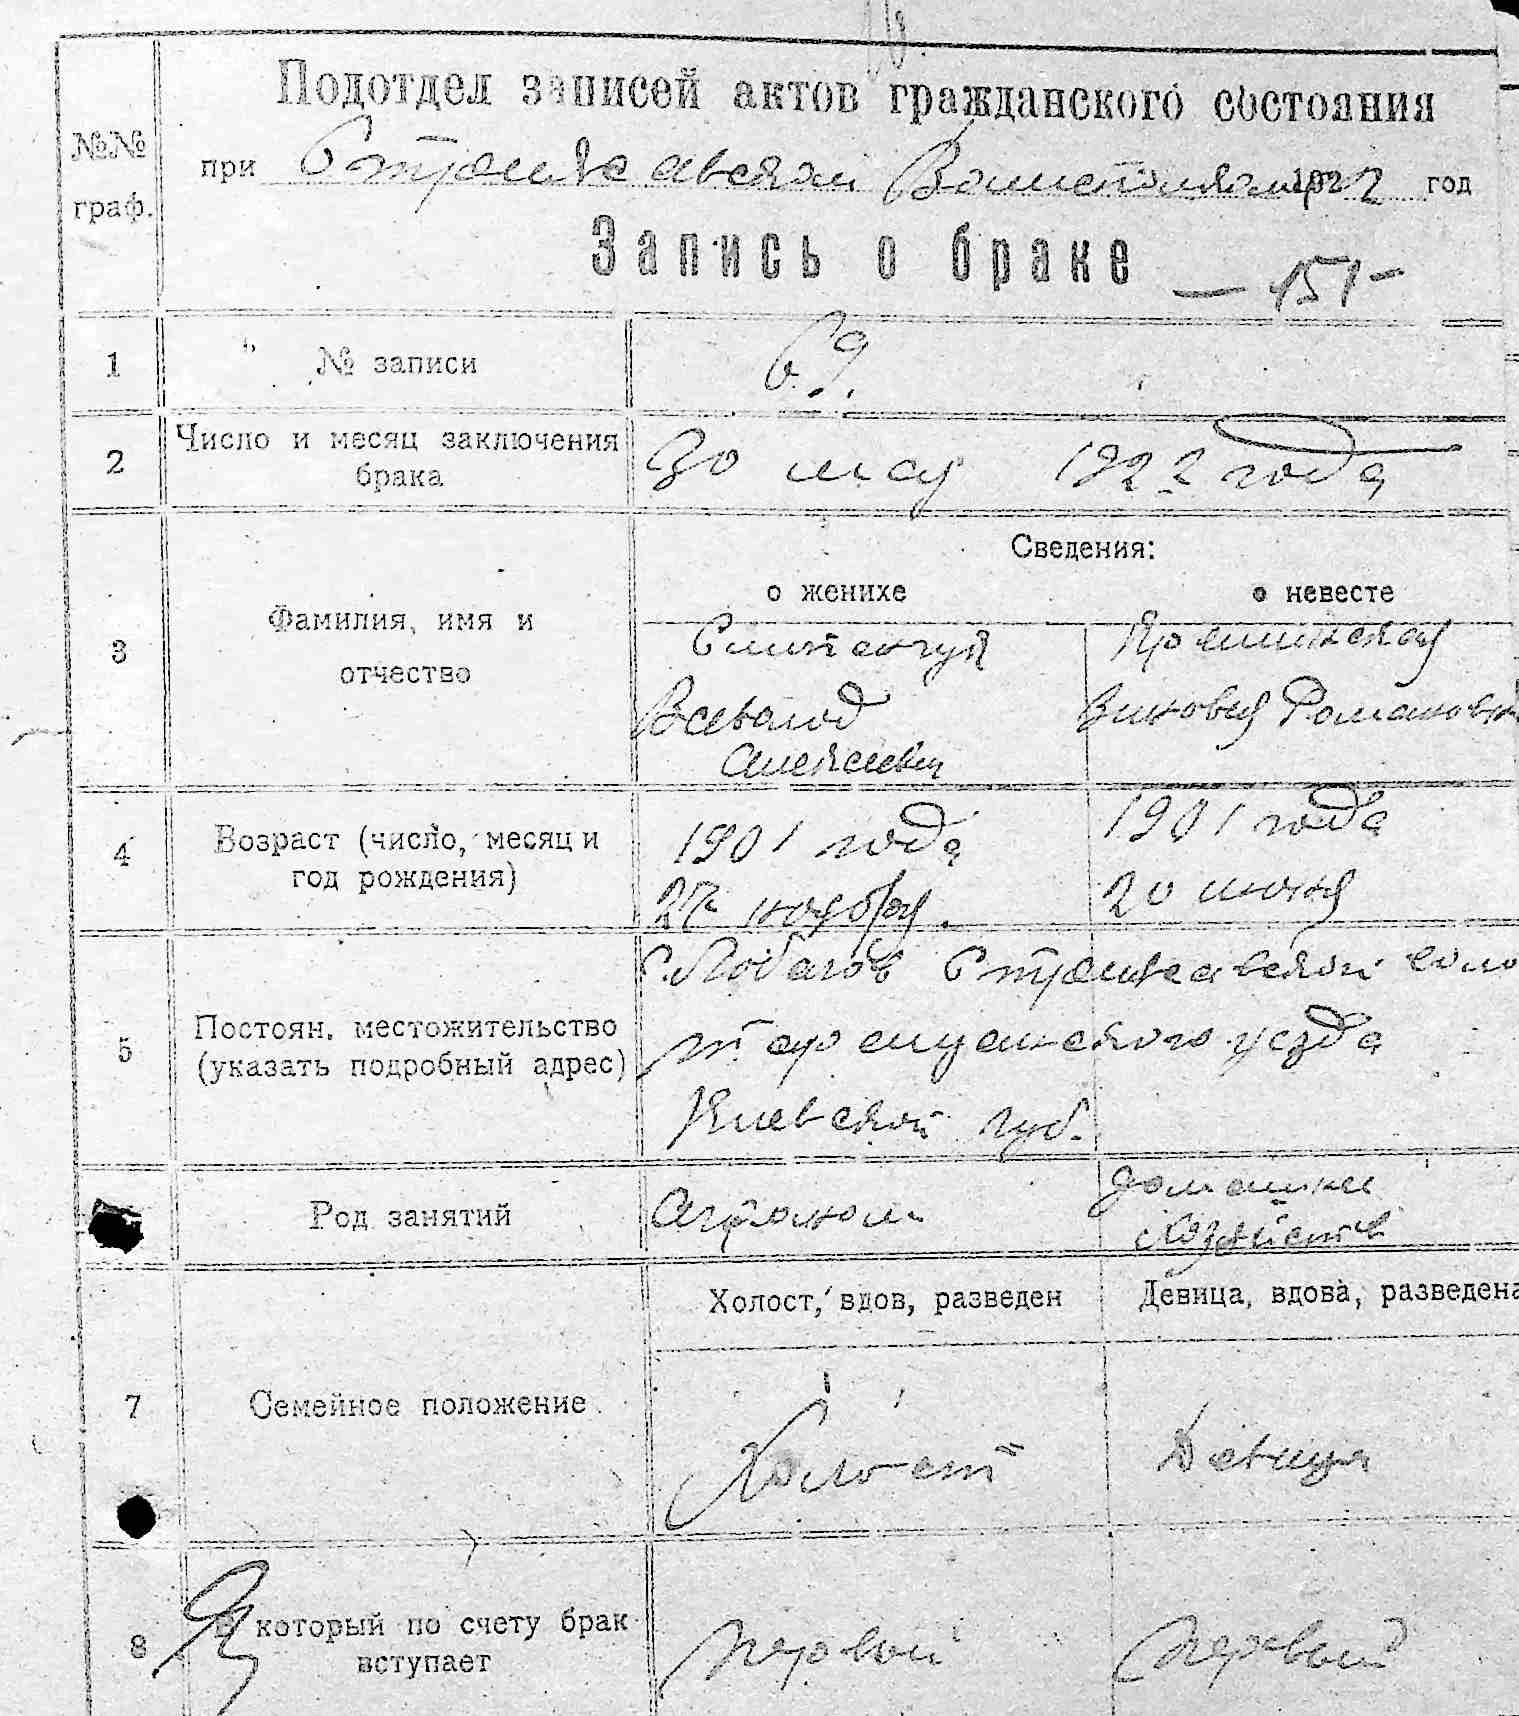 Подотдел записей актов гражданского состояния
№№ граф.
при Стрижавской Волисполкоме 1922 год
Запись о браке — 151 —
1 № записи 69.
2 Число и месяц заключения брака
30 мая 1922 года
Сведения:
о женихе о невесте
3 Фамилия, имя и
отчество
Всеволод Зиновия Романовн
Алексеевич
4 Возраст (число, месяц и
год рождения)
1901 года 1901 года
27 ноября. 20 июня
5 Постоян. местожительство
(указать подробный адрес)
Таращанского уезда
Киевской губ.
Род занятий
Агроном домашнее
хозяйство
Холост, вдов, разведен Девица, вдова, разведена
7 Семейное положение
Холост Девица
8 В который по счету брак
вступает
первый первый